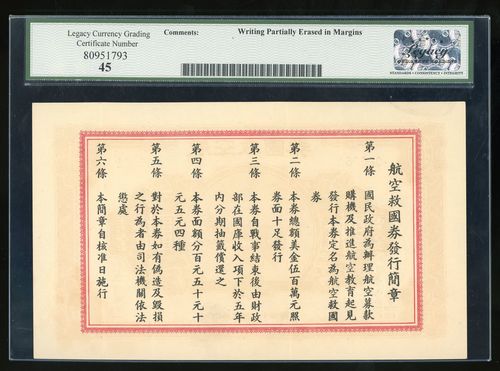 Legacy Currency Grading
Certificate Number
80951793
45
Comments:
Writing Partially Erased in Margins
Legacy
CURRENCY GRADING
STANDARDS • CONSISTENCY • INTEGRITY
航空救國券發行簡章
第一條 國民政府為辦理航空募款
購機及推進航空教育起見
發行本券定名為航空救國
券
第二條 本券總額美金伍百萬元照
券面十足發行
第三條 本券自戰事結束後由財政
部在國庫收入項下於五年
內分期抽籤償還之
第四條 本券面額分百元五十元十
元五元四種
第五條 對於本券如有偽造及毀損
之行為者由司法機關依法
懲處
第六條 本簡章自核准日施行